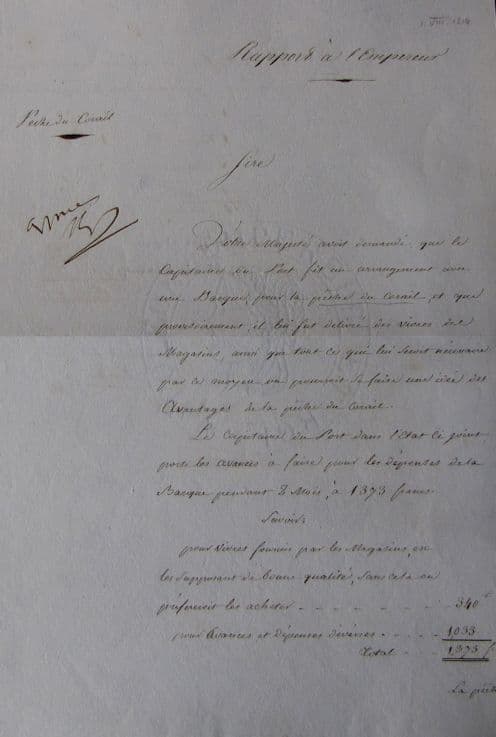 VIII. 1814
Rapport à l'Empereur
Pêche du Corail
Sire
Votre Majesté avoit demandé que le
Capitaine du Port fit un arrangement avec
une Barque pour la pêche du corail, et que
provisoirement, il lui fut delivré des vivres des
Magasins, ainsi que tout ce qui lui seroit nécessaire
par ce moyen on pourroit se faire une idée des
Avantages de la pêche du corail.
Le Capitaine du Port dans l'Etat ci joint
porte les avances à faire pour les dépenses de la
Barque pendant 2 Mois, à 1373 francs
Savoir;
pour vivres fournis par les Magasins, en
les supposant de bonne qualité, sans cela on
préfereroit les acheter - - - - - - - 340
pour Avances et dépenses diverses - - - - 1033
Total - - - 1,373 f
La pêche